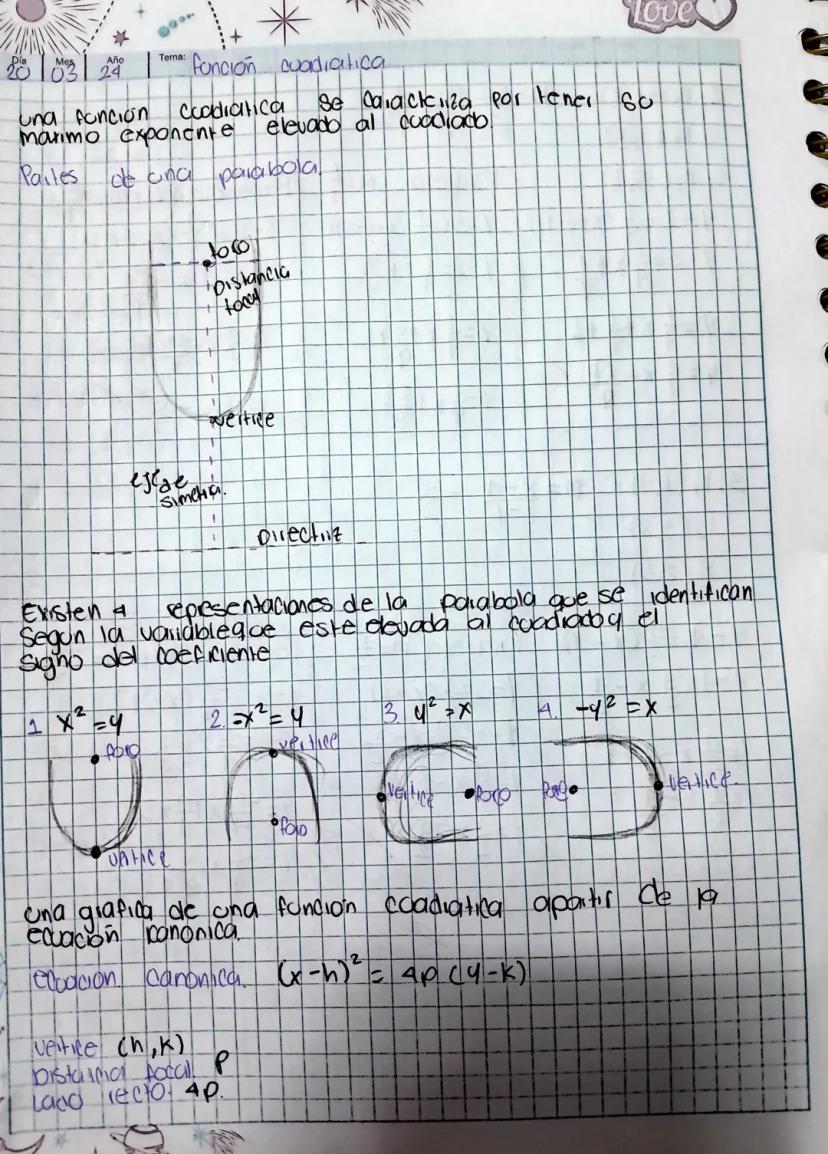 Love
Día Mes Año Tema: Función cuadratica
20 03 24
una función cuadratica se caracteriza por tener su
maximo exponente elevado al cuadrado.
Partes de una parabola.
foco
Distancia
focal
vertice
eje de
simetria.
Directriz
Existen 4 representaciones de la parabola que se identifican
Segun la variable que este elevada al cuadrado y el
signo del coeficiente
1 x² = y 2. -x² = y 3. y² = x 4. -y² = x
foco vertice vertice foco foco vertice.
vertice foco
una grafica de una función cuadratica apartir de la
ecuación canonica.
ecuacion canonica. (x-h)² = 4p (y-k)
vertice (h,k)
Distancia focal. p
Lado recto. 4p.